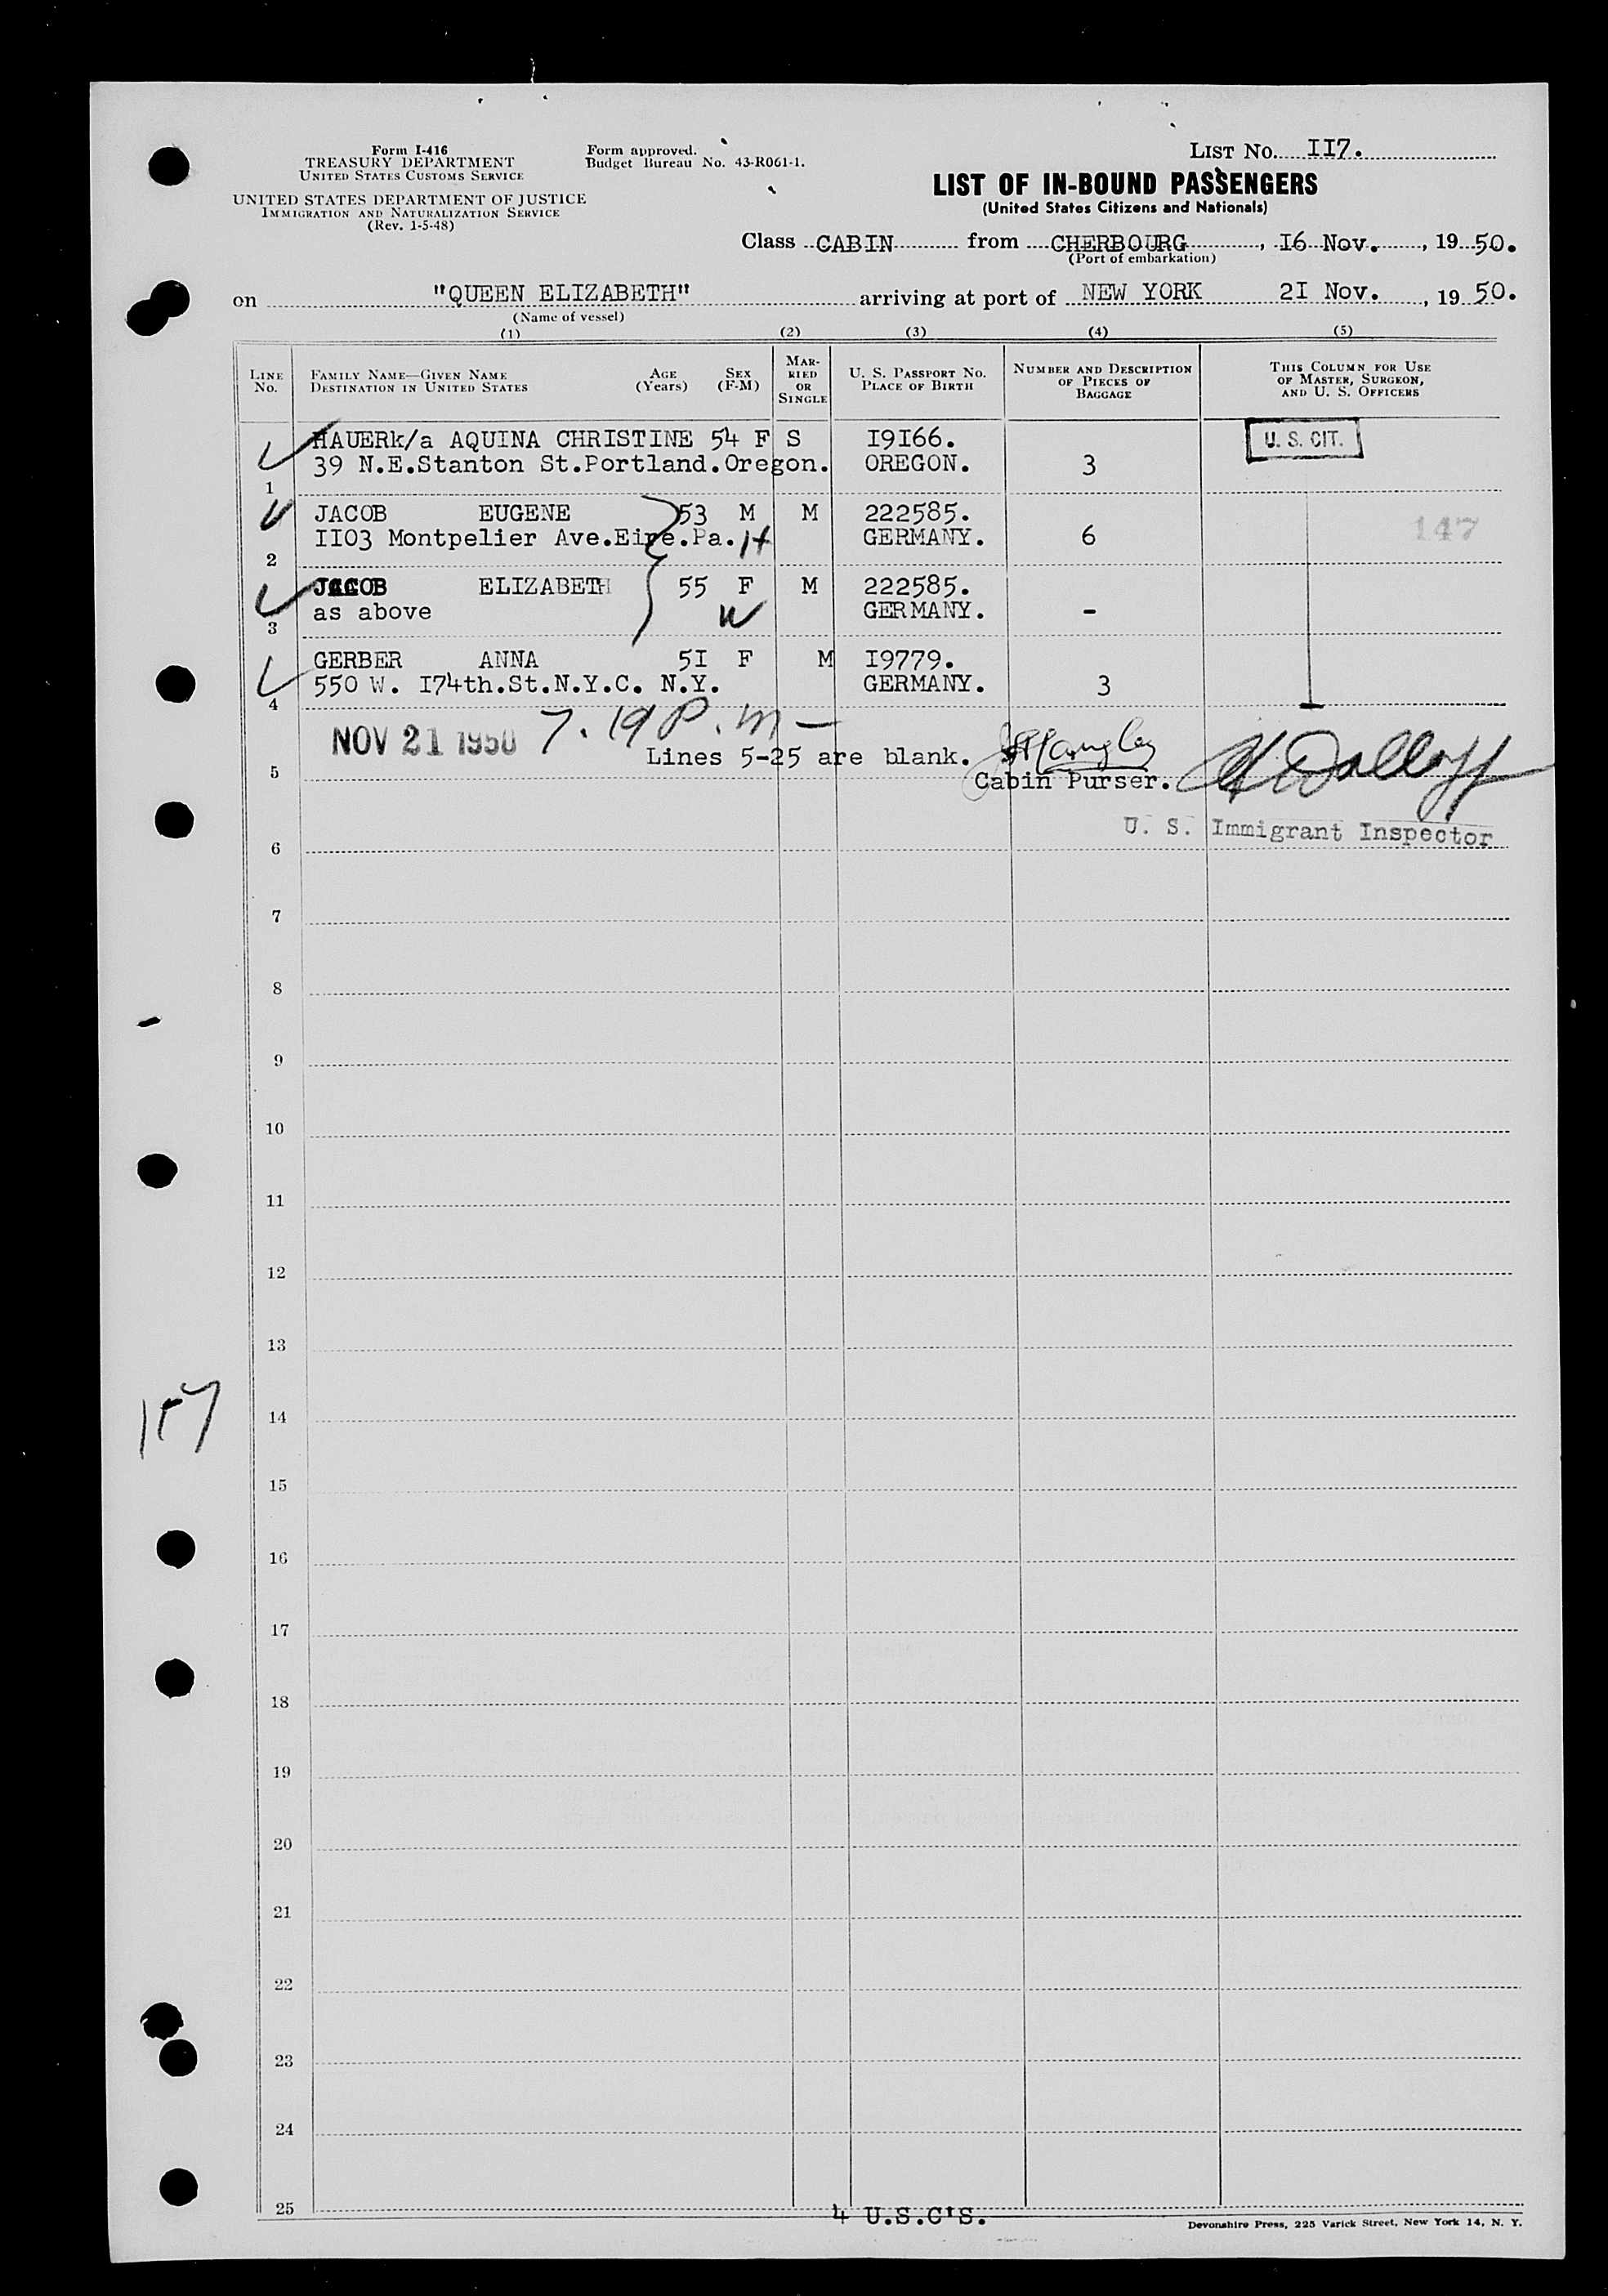 Form I-416
TREASURY DEPARTMENT
UNITED STATES CUSTOMS SERVICE
UNITED STATES DEPARTMENT OF JUSTICE
IMMIGRATION AND NATURALIZATION SERVICE
(Rev. 1-5-48)
Form approved.
Budget Bureau No. 43-R061-1.
LIST NO. II7.
LIST OF IN-BOUND PASSENGERS
(United States Citizens and Nationals)
Class CABIN from CHERBOURG, I6 Nov., 19 50.
(Port of embarkation)
on "QUEEN ELIZABETH" arriving at port of NEW YORK 2I Nov., 19 50.
(Name of vessel)
(1) (2) (3) (4) (5)
LINE NO.
FAMILY NAME—GIVEN NAME AGE SEX
DESTINATION IN UNITED STATES (YEARS) (F-M)
MARRIED OR SINGLE
U. S. PASSPORT NO.
PLACE OF BIRTH
NUMBER AND DESCRIPTION
OF PIECES OF
BAGGAGE
THIS COLUMN FOR USE
OF MASTER, SURGEON,
AND U. S. OFFICERS
HAUERk/a AQUINA CHRISTINE 54 F S I9I66. U. S. CIT.
39 N.E.Stanton St.Portland.Oregon. OREGON. 3
1
JACOB EUGENE 53 M M 222585.
II03 Montpelier Ave.Eire.Pa. H GERMANY. 6 147
2
JACOB ELIZABETH 55 F M 222585.
as above W GERMANY. -
3
GERBER ANNA 5I F M I9779.
550 W. I74th.St.N.Y.C. N.Y. GERMANY. 3
4
NOV 21 1950 7.19 P.m —
Lines 5-25 are blank.
5
Cabin Purser.
U. S. Immigrant Inspector
6
7
8
9
10
11
12
13
14
15
16
17
18
19
20
21
22
23
24
25
4 U.S.C'S.
Devonshire Press, 225 Varick Street, New York 14, N. Y.